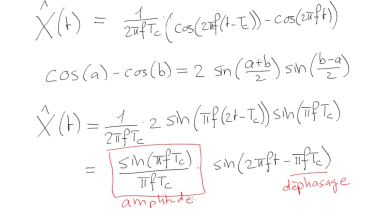 X̂(t) = 1/(2πfTc) · (cos(2πf(t-Tc)) - cos(2πft))
cos(a) - cos(b) = 2 sin((a+b)/2) sin((b-a)/2)
X̂(t) = 1/(2πfTc) · 2 sin(πf(2t-Tc)) sin(πfTc)
= sin(πfTc)/(πfTc) · sin(2πft - πfTc)
amplitude
déphasage